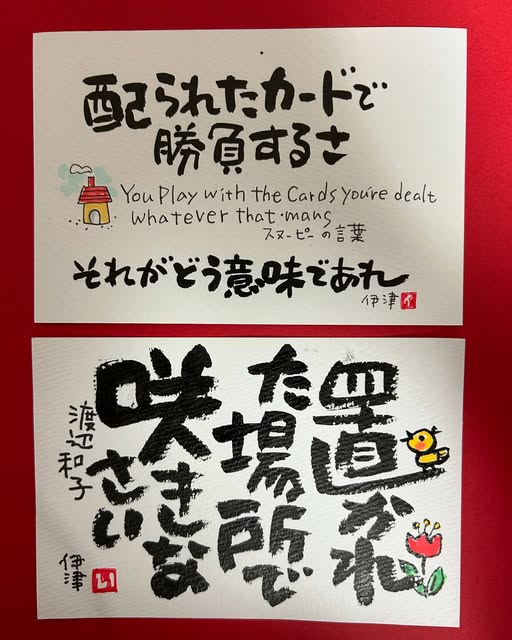 配られたカードで
勝負するさ
You Play with the Cards you're dealt
whatever that mans
スヌーピーの言葉
それがどう意味であれ
伊津
置かれ
た場所で
咲きな
さい
渡辺和子
伊津
い